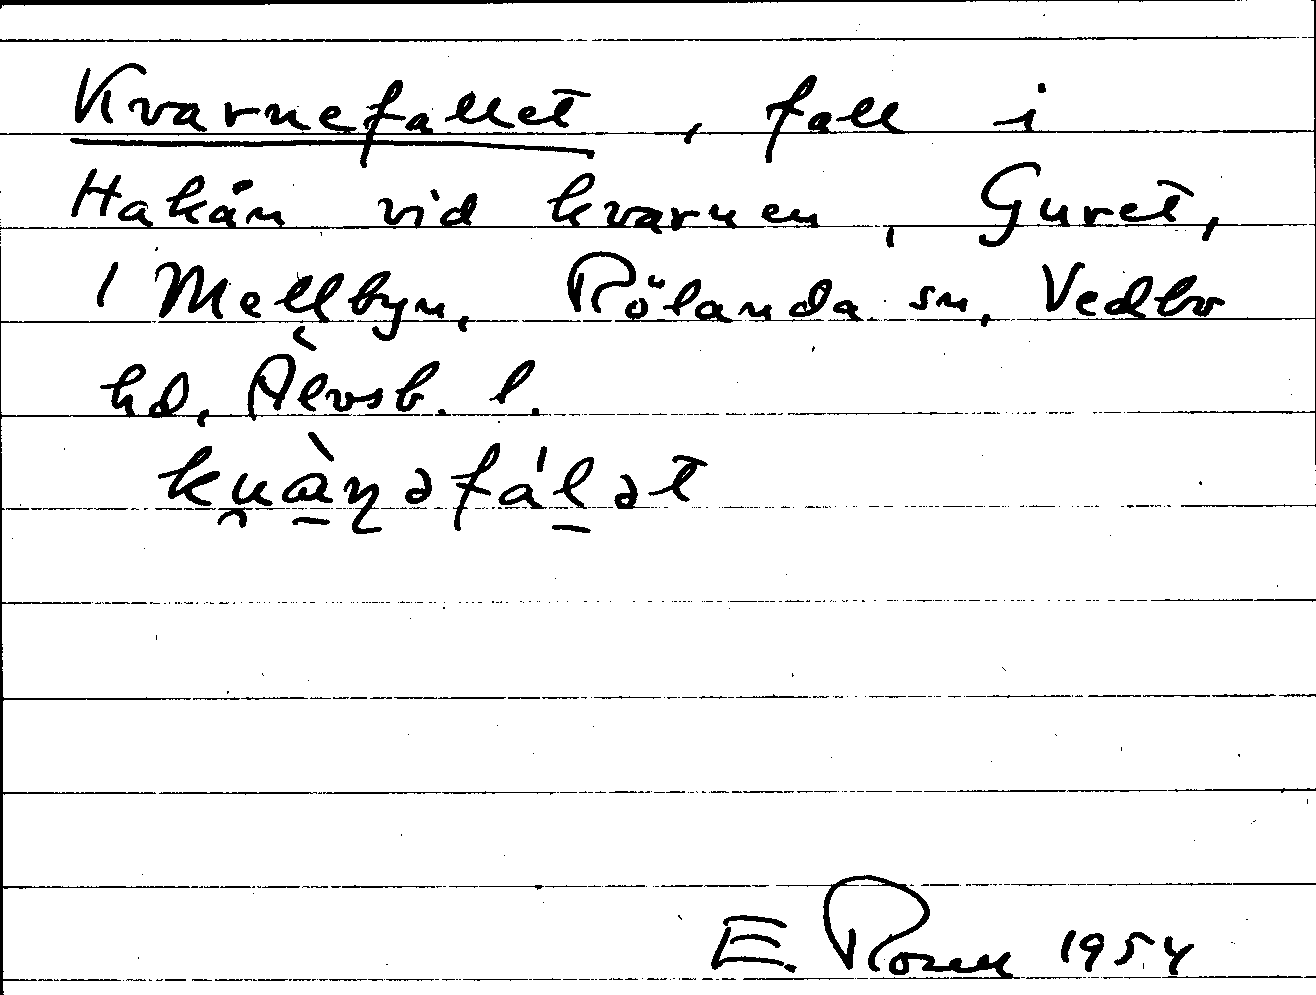 Kvarnefallet, fall i
Hakån vid kvarnen, Guret,
1 Mellbyn, Rölanda sn, Vedbo
hd, Älvsb. l.
ku̯àn̠əfál̠ət
E. Rosell 1954